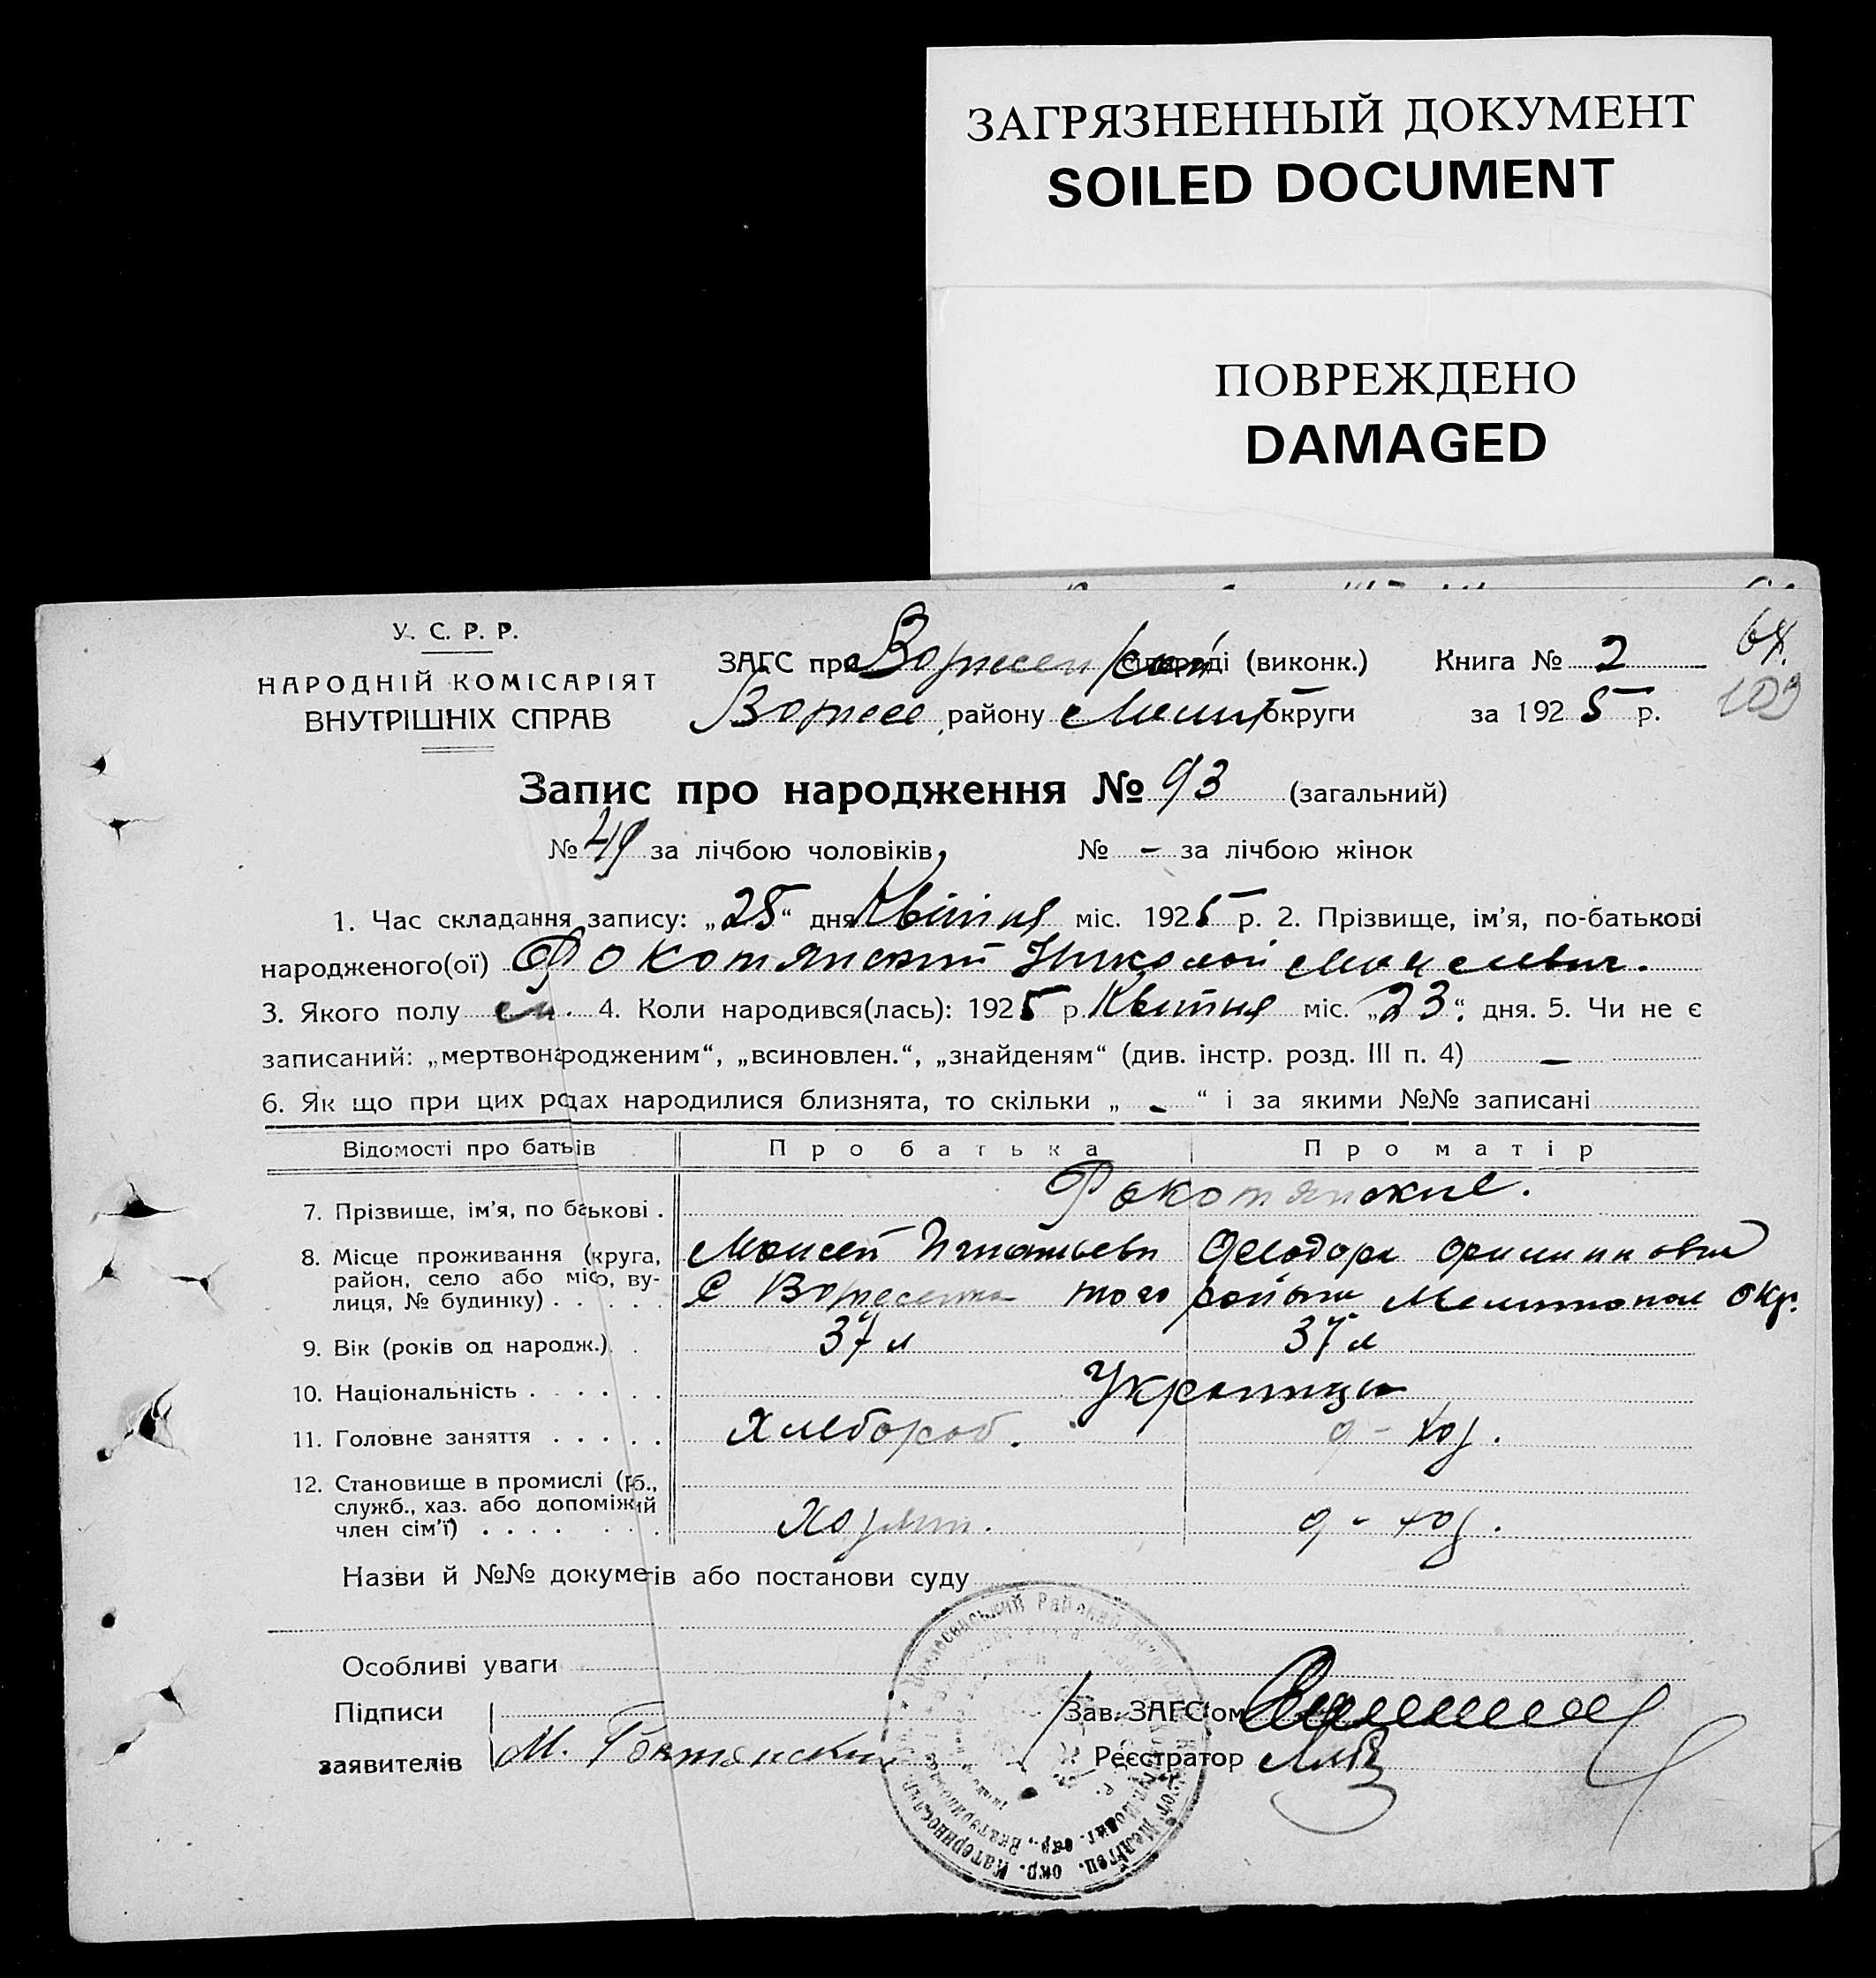 ЗАГРЯЗНЕННЫЙ ДОКУМЕНТ
SOILED DOCUMENT
ПОВРЕЖДЕНО
DAMAGED
У. С. Р. Р.
НАРОДНІЙ КОМІСАРІЯТ
ВНУТРІШНІХ СПРАВ
ЗАГС при (виконк.)
району округи
Книга № 2
за 1925 р.
103
Запис про народження № 93 (загальний)
№ 49 за лічбою чоловіків, № - за лічбою жінок
1. Час складання запису: „25“ дня Квітня міс. 1925 р. 2. Прізвище, ім’я, по-батькові
народженого(ої) Фокотянский Николай
3. Якого полу м. 4. Коли народився(лась): 1925 р. Квітня міс. „23“ дня. 5. Чи не є
записаний: „мертвонародженим“, „всиновлен.“, „знайденям“ (див. інстр. розд. III п. 4) —
6. Як що при цих родах народилися близнята, то скільки „ - “ і за якими №№ записані
Відомості про батьків Про батька Про матір
7. Прізвище, ім’я, по батькові . Фокотянские.
8. Місце проживання (округа, район, село або місто, вулиця, № будинку) . . . . .
Моисей Игнатьевич Феодора
С Вознесенка того района Мелитопол окр.
9. Вік (років од народж.) . 37 л 37 л
10. Національність . . . . . . Украинцы
11. Головне заняття . . . . . Хлебороб. д - хоз.
12. Становище в промислі (роб., служб., хаз. або допоміжний член сім’ї) . . . . . . .
Хозяин. д - хоз.
Назви й №№ документів або постанови суду
Особливі уваги
Підписи
заявителів
Зав. ЗАГС’ом
Реєстратор